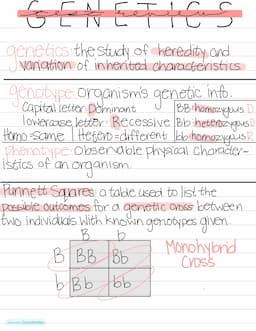 GENETICS
genetics the study of heredity and
variation of inherited characteristics
genotype Organism's genetic info.
Capital letter: Dominant
BB homozygous D.
lowercase letter: Recessive
Bb heterozygous D.
Homo = same | Hetero = different
bb homozygous R.
Phenotype: Observable physical character-
istics of an organism.
Punnett Squares: a table used to list the
possible outcomes for a genetic cross between
two individuals with known genotypes given.
B b
B BB Bb
b Bb bb
Monohybrid
Cross